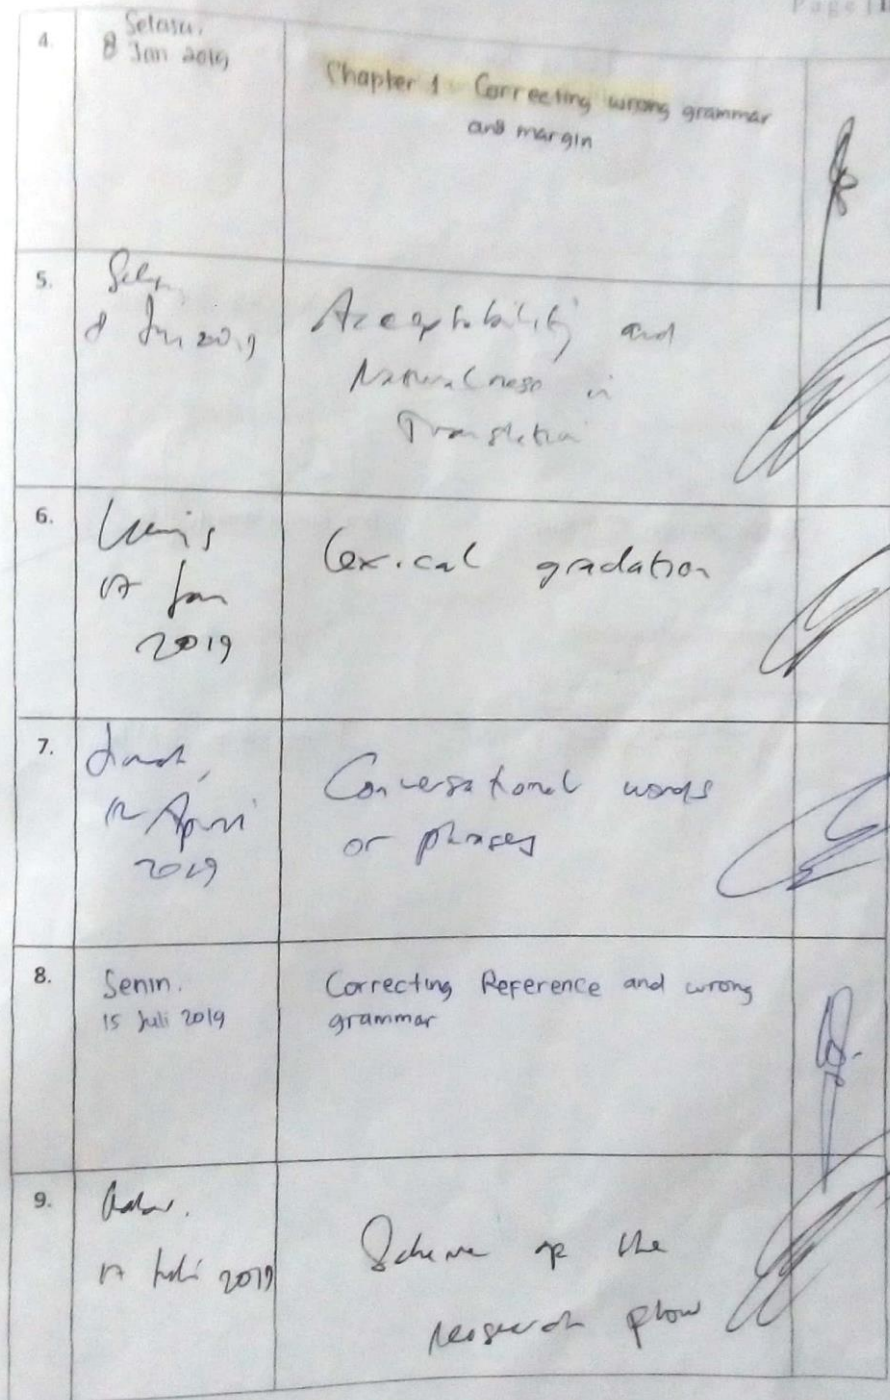 Page | 1
4.
Selasa,
8 Jan 2019
Chapter 1 Correcting wrong grammar
and margin
5.
8 Jan 2019
Acceptability and
Naturalness in
Translation
6.
Kamis
17 Jan
2019
Lexical gradation
7.
Jumat,
12 April
2019
Conversational words
or phrases
8.
Senin.
15 Juli 2019
Correcting Reference and wrong
grammar
9.
Rabu.
17 Juli 2019
Scheme of the
research flow